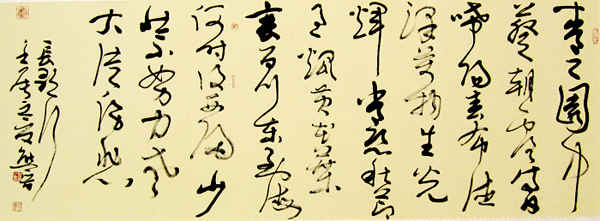 青〻園中
葵朝露待日
晞陽春布德
澤萬物生光
輝常恐秋節
至焜黄華葉
衰百川東到海
何時復西歸少
壯不努力老
大徒傷悲
長歌行